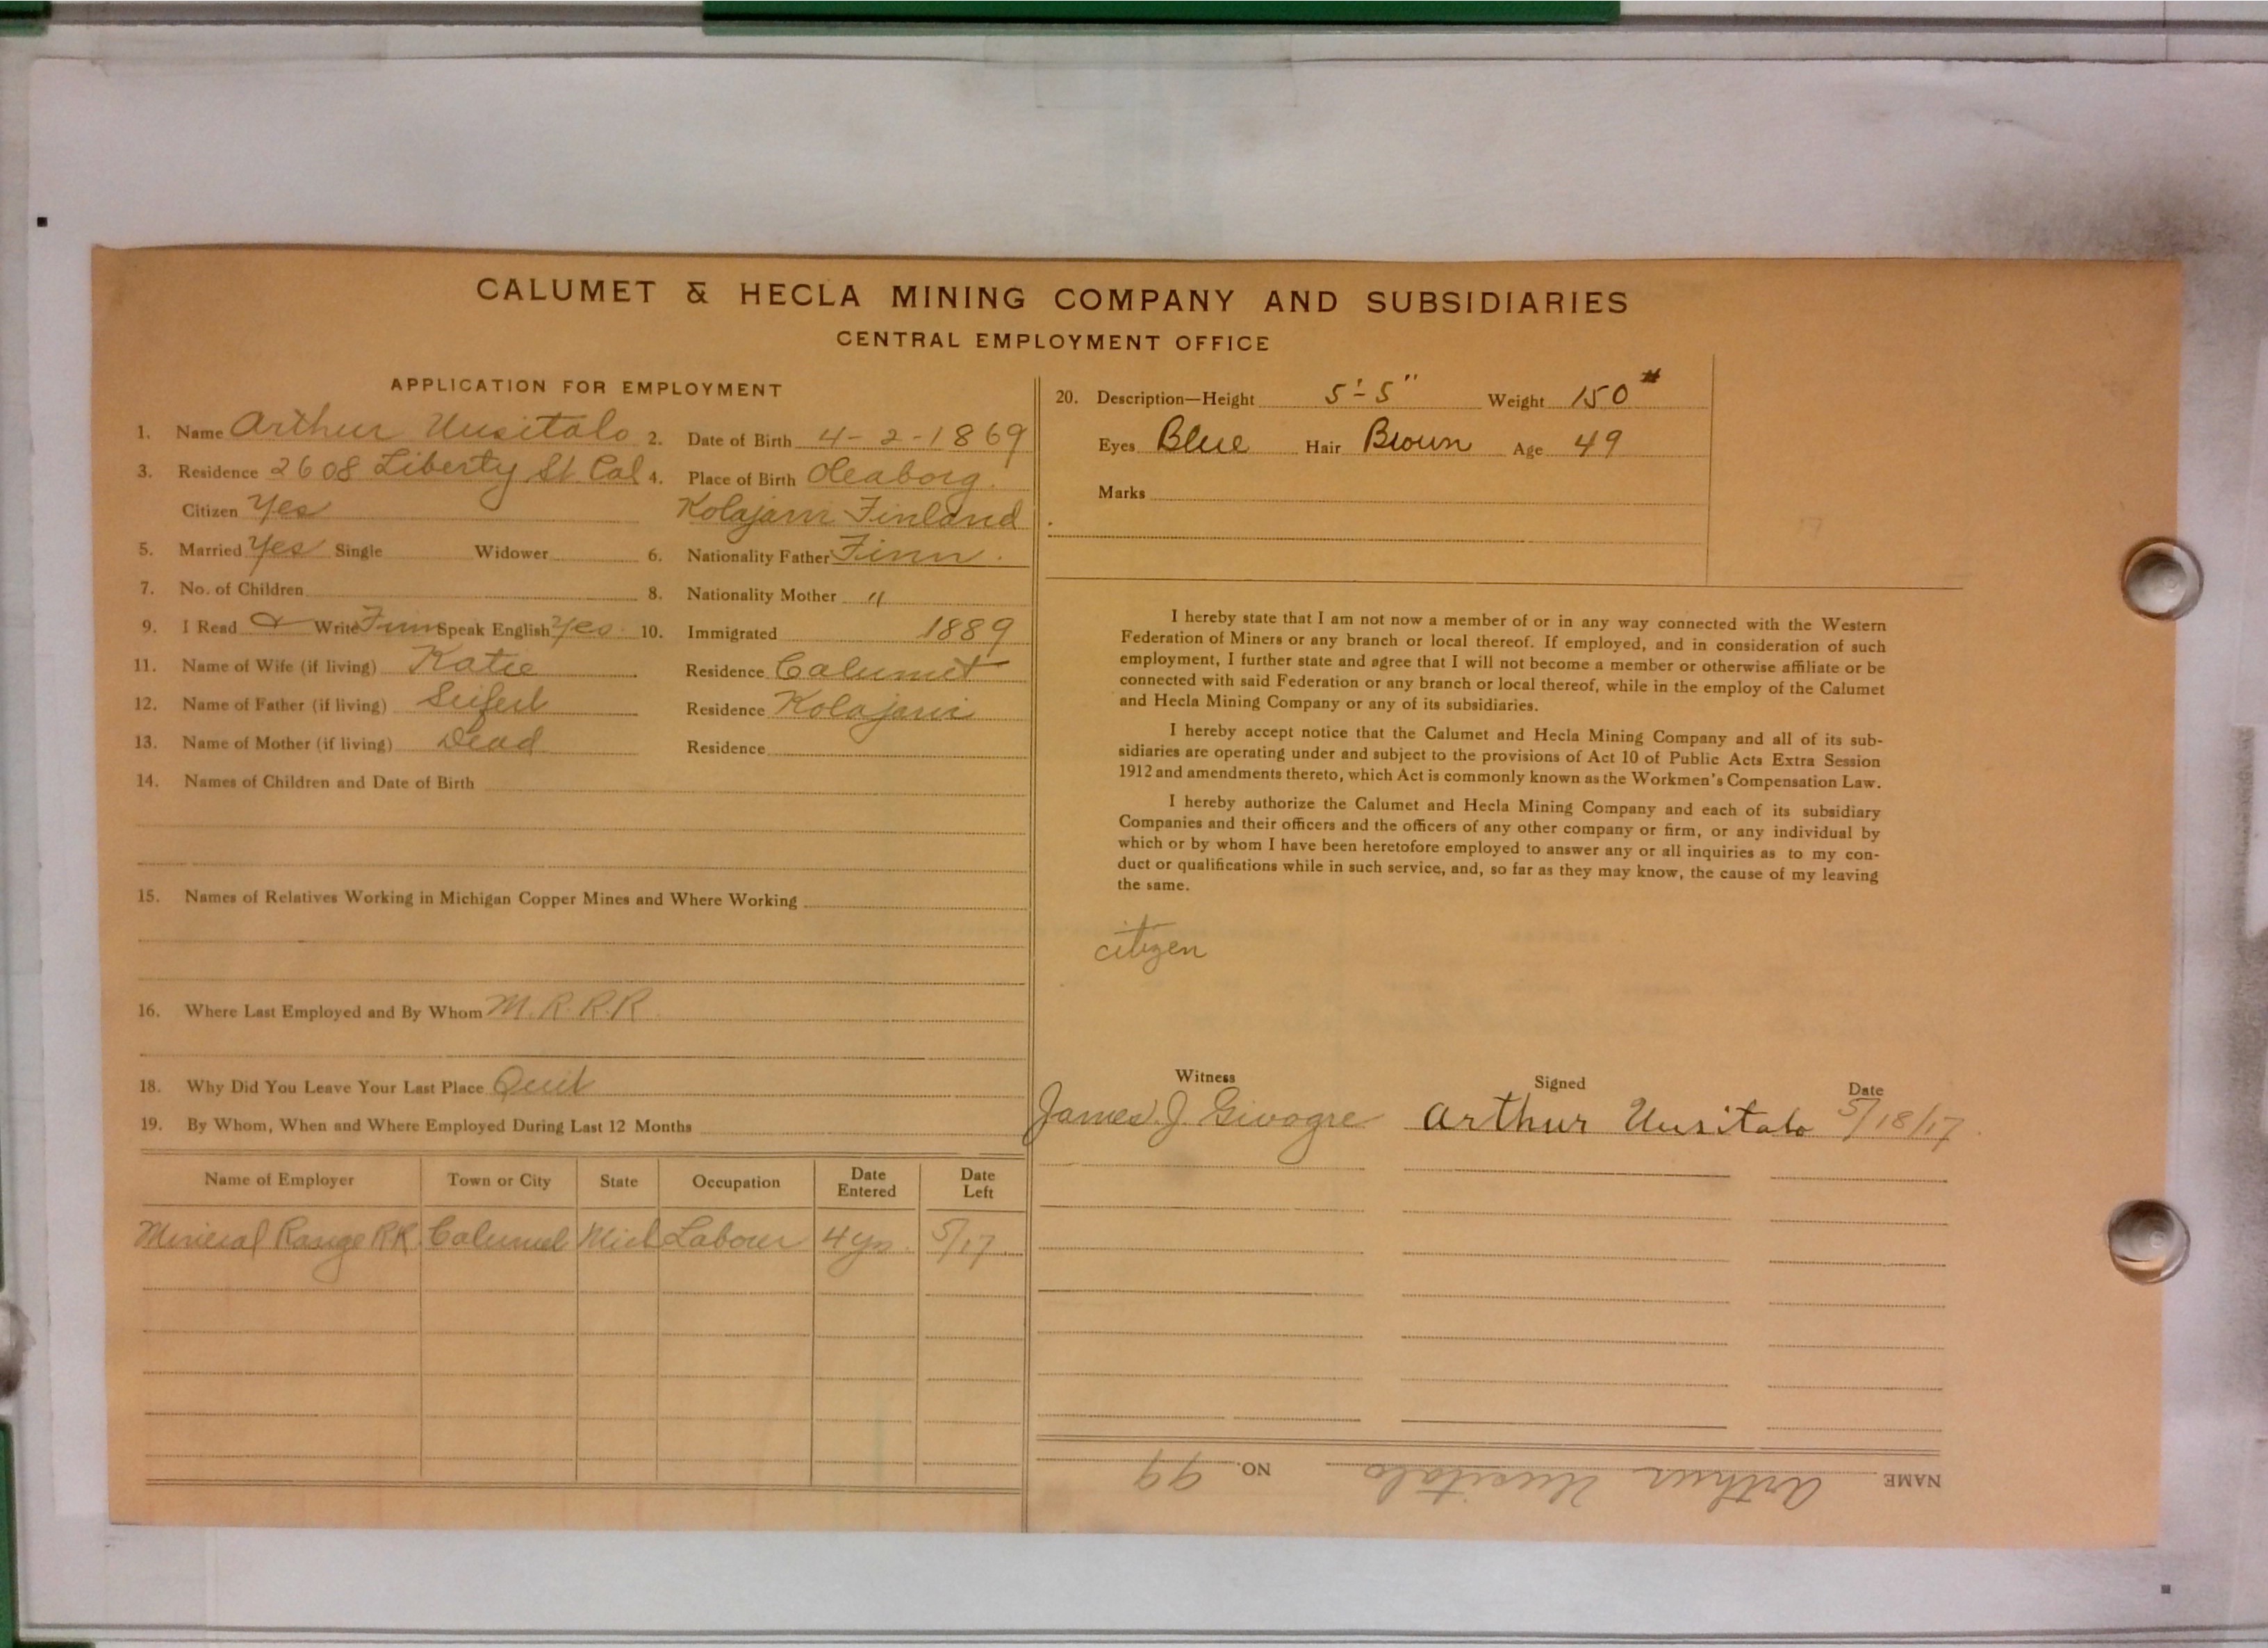 CALUMET & HECLA MINING COMPANY AND SUBSIDIARIES
CENTRAL EMPLOYMENT OFFICE
APPLICATION FOR EMPLOYMENT
1. Name Arthur Uusitalo 2. Date of Birth 4-2-1869
3. Residence 2608 Liberty St. Cal 4. Place of Birth Oleaborg.
Citizen Yes Kolajarvi Finland
5. Married Yes Single Widower 6. Nationality Father Finn.
7. No. of Children 8. Nationality Mother "
9. I Read & Write Finn Speak English Yes 10. Immigrated 1889
11. Name of Wife (if living) Katie Residence Calumet
12. Name of Father (if living) Residence Kolajarvi
13. Name of Mother (if living) Dead Residence
14. Names of Children and Date of Birth
15. Names of Relatives Working in Michigan Copper Mines and Where Working
16. Where Last Employed and By Whom M.R.R.R.
18. Why Did You Leave Your Last Place Quit
19. By Whom, When and Where Employed During Last 12 Months
Name of Employer Town or City State Occupation Date Entered Date Left
Mineral Range RR Calumet Mich Labour 4 yrs. 5/17
20. Description—Height 5'-5" Weight 150#
Eyes Blue Hair Brown Age 49
Marks
I hereby state that I am not now a member of or in any way connected with the Western
Federation of Miners or any branch or local thereof. If employed, and in consideration of such
employment, I further state and agree that I will not become a member or otherwise affiliate or be
connected with said Federation or any branch or local thereof, while in the employ of the Calumet
and Hecla Mining Company or any of its subsidiaries.
I hereby accept notice that the Calumet and Hecla Mining Company and all of its sub-
sidiaries are operating under and subject to the provisions of Act 10 of Public Acts Extra Session
1912 and amendments thereto, which Act is commonly known as the Workmen's Compensation Law.
I hereby authorize the Calumet and Hecla Mining Company and each of its subsidiary
Companies and their officers and the officers of any other company or firm, or any individual by
which or by whom I have been heretofore employed to answer any or all inquiries as to my con-
duct or qualifications while in such service, and, so far as they may know, the cause of my leaving
the same.
citizen
Witness Signed Date
James J. Givogre Arthur Uusitalo 5/18/17
NAME Arthur Uusitalo NO. 99